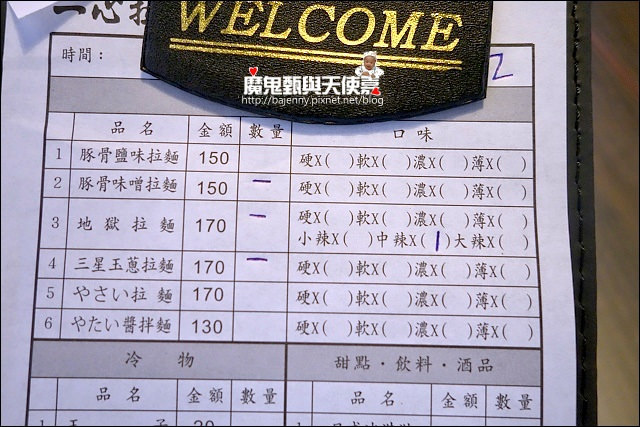 一心拉
WELCOME
時間：
2
魔鬼甄與天使嘉
http://bajenny.pixnet.net/blog
品名 金額 數量 口味
1 豚骨鹽味拉麵 150 硬X( )軟X( )濃X( )薄X( )
2 豚骨味噌拉麵 150 一 硬X( )軟X( )濃X( )薄X( )
3 地獄拉麵 170 一 硬X( )軟X( )濃X( )薄X( )
小辣X( )中辣X(1)大辣X( )
4 三星玉蔥拉麵 170 一 硬X( )軟X( )濃X( )薄X( )
5 やさい拉麵 170 硬X( )軟X( )濃X( )薄X( )
6 やたい醬拌麵 130 硬X( )軟X( )濃X( )薄X( )
冷物 甜點・飲料・酒品
品名 金額 數量 品名 金額 數量